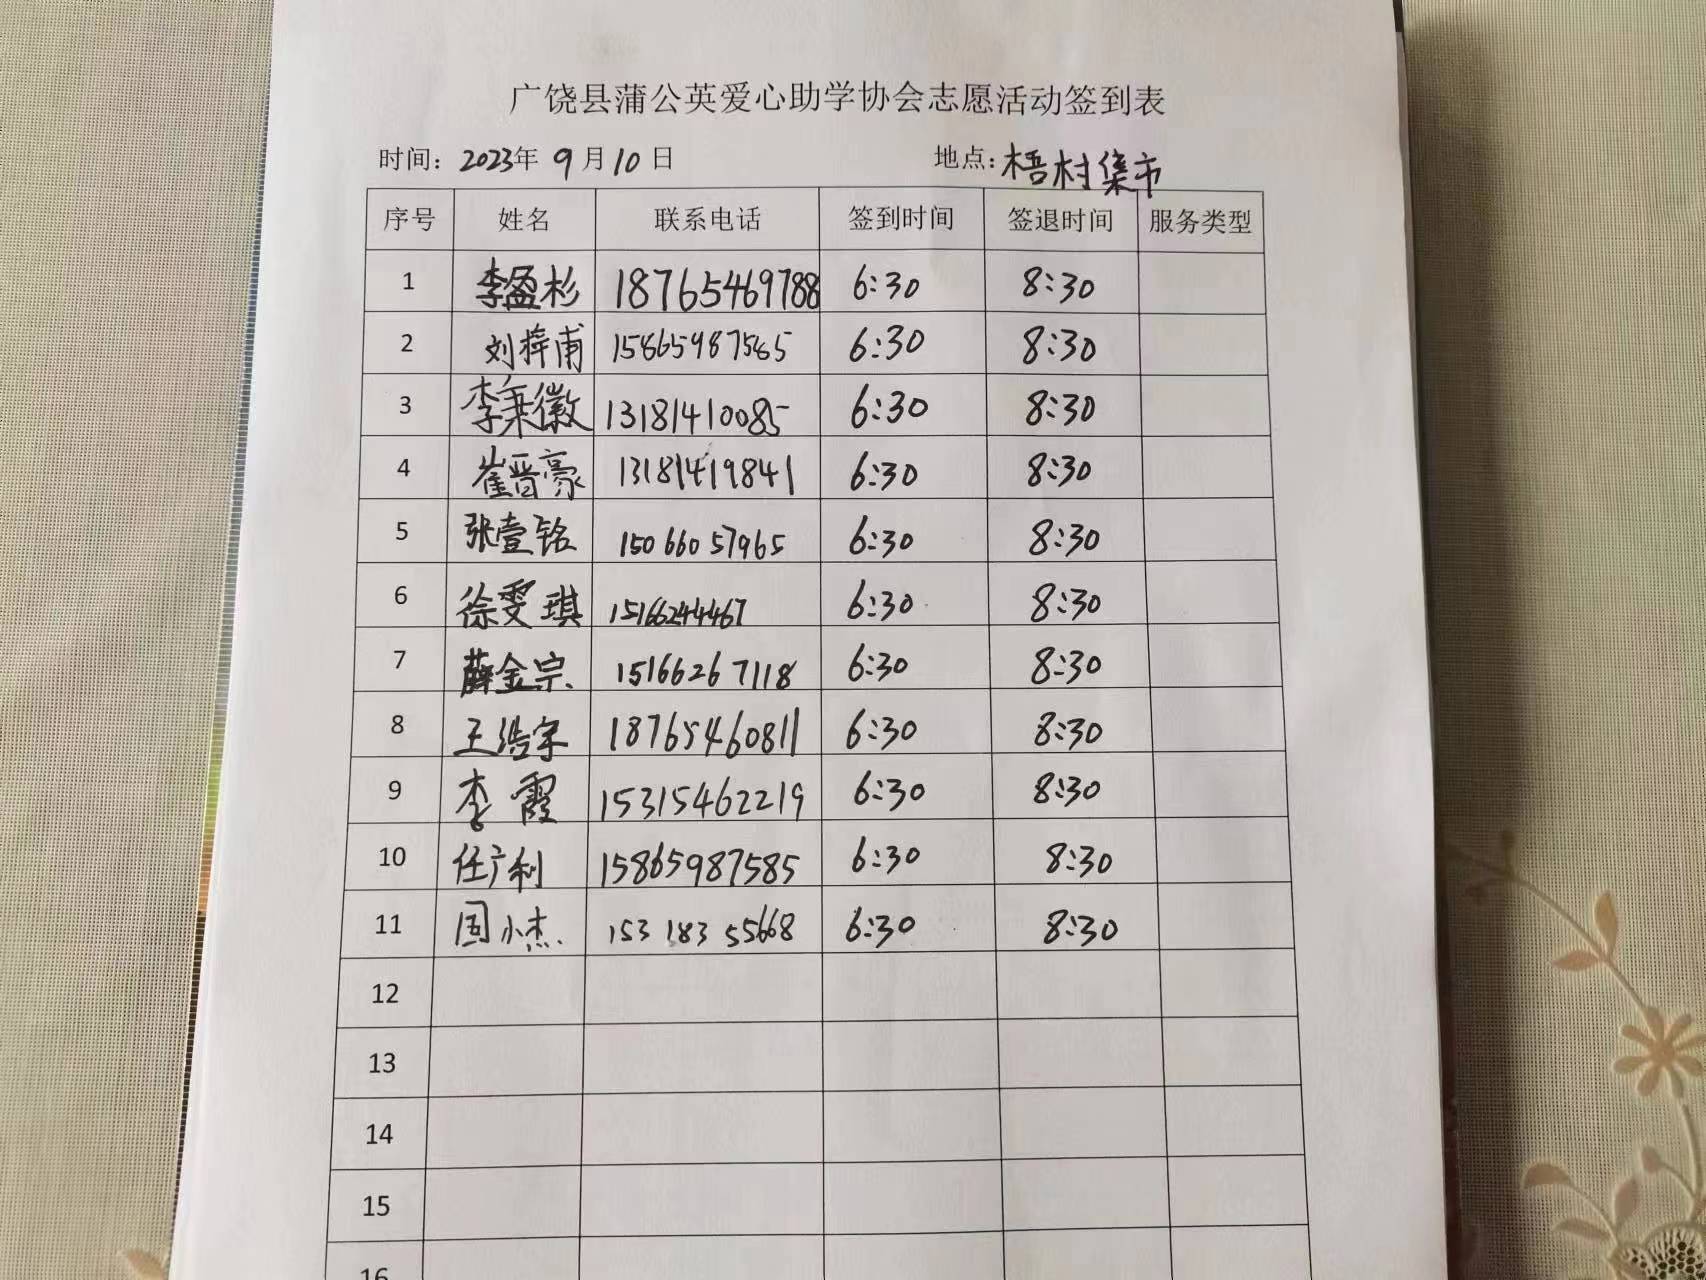 广饶县蒲公英爱心助学协会志愿活动签到表
时间：2023年 9月10日 地点：梧村集市
序号 姓名 联系电话 签到时间 签退时间 服务类型
1 李盈杉 18765469788 6:30 8:30
2 刘梓甫 15865987585 6:30 8:30
3 李秉徽 13181410085 6:30 8:30
4 崔晋豪 13181419841 6:30 8:30
5 张壹铭 15066057965 6:30 8:30
6 徐雯琪 15166244467 6:30 8:30
7 薛金宗 15166267118 6:30 8:30
8 王浩宇 18765460811 6:30 8:30
9 李霞 15315462219 6:30 8:30
10 任广利 15865987585 6:30 8:30
11 国小杰 15318355668 6:30 8:30
12
13
14
15
16